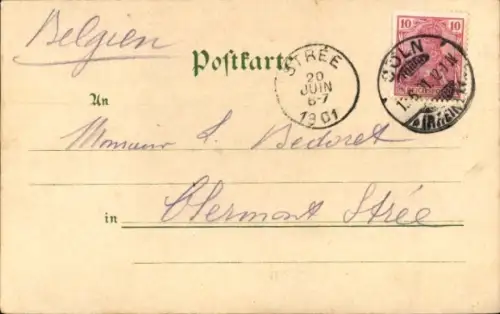 Belgien
Postkarte
10 10
STRÉE
20
JUIN
6-7
1901
CÖLN
An
Monsieur L. Bedoret
in
Clermont Strée